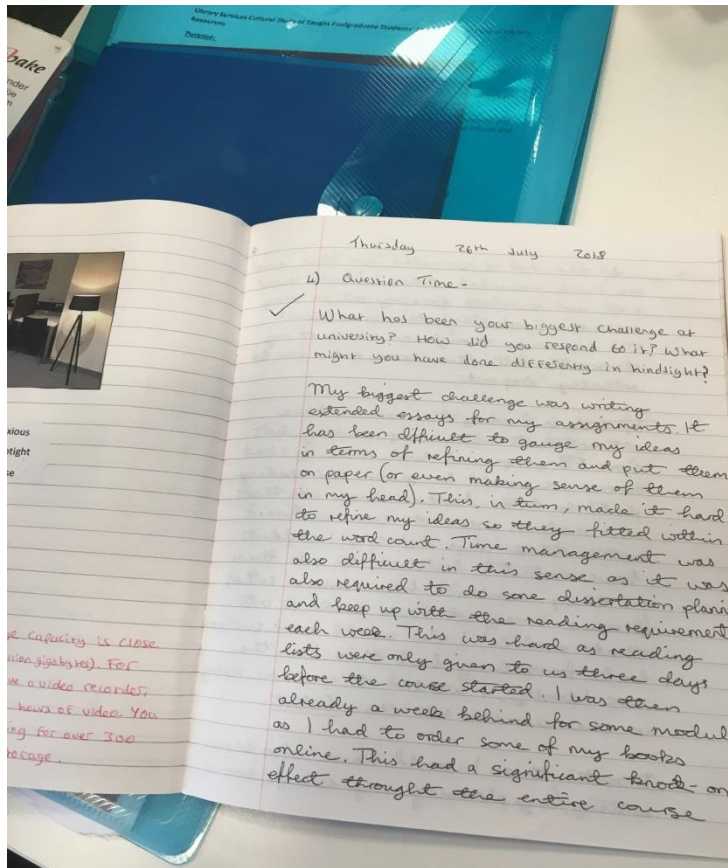 Library Services Cultural Study of Taught Postgraduate Students' of Library
Resources
Purpose:
bake
nder
Thursday 26th July 2018
4) Question Time -
What has been your biggest challenge at
university? How did you respond to it? What
might you have done differently in hindsight?
My biggest challenge was writing
extended essays for my assignments. It
has been difficult to gauge my ideas
in terms of refining them and put them
on paper (or even making sense of them
in my head). This, in turn, made it hard
to refine my ideas so they fitted within
the word count. Time management was
also difficult in this sense as it was
also required to do some dissertation plani
and keep up with the reading requirement
each week. This was hard as reading
lists were only given to us three days
before the course started. I was then
already a week behind for some modul
as I had to order some of my books
online. This had a significant knock-on
effect throught the entire course
xious
tight
se
e capacity is close
ion gigabytes). For
ve a video recorder,
hours of video. You
ing for over 300
torage.